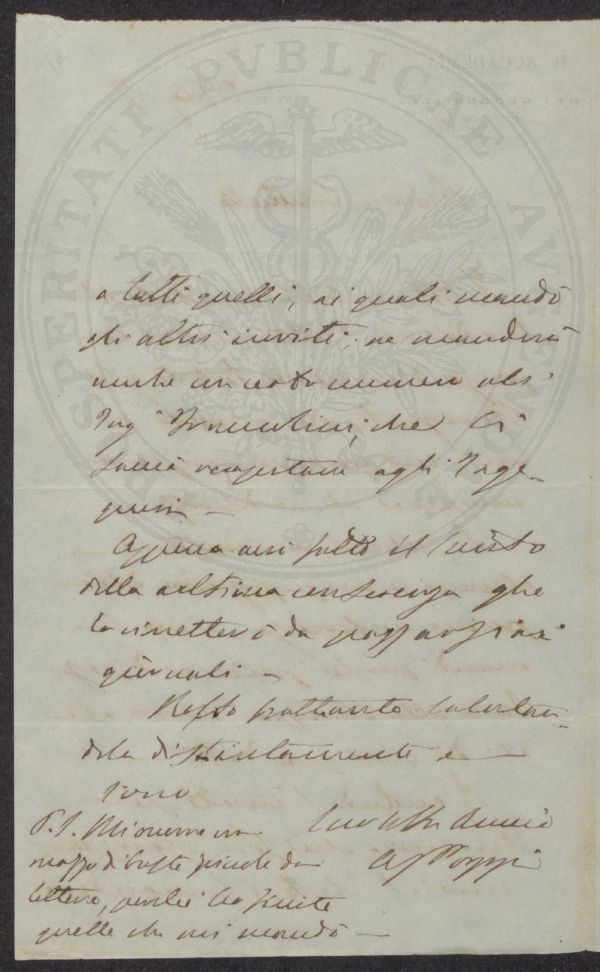 PROSPERITATI PUBLICAE AUGENDAE
a tutti quelli, ai quali mandò
gli altri inviti; ne manderà
anche un certo numero all'
Ing. che li
farà recapitare agli Inge-
gneri —
Appena avrò fatto il sunto
della ultima conferenza glie
lo rimetterò da passarsi ai
giornali —
Resto frattanto salutan-
dola distintamente e
sono
Suo Aff. Amico
P.S. Mi occorre un
mazzo di buste piccole da
lettere, perchè ho finite
quelle che mi mandò —